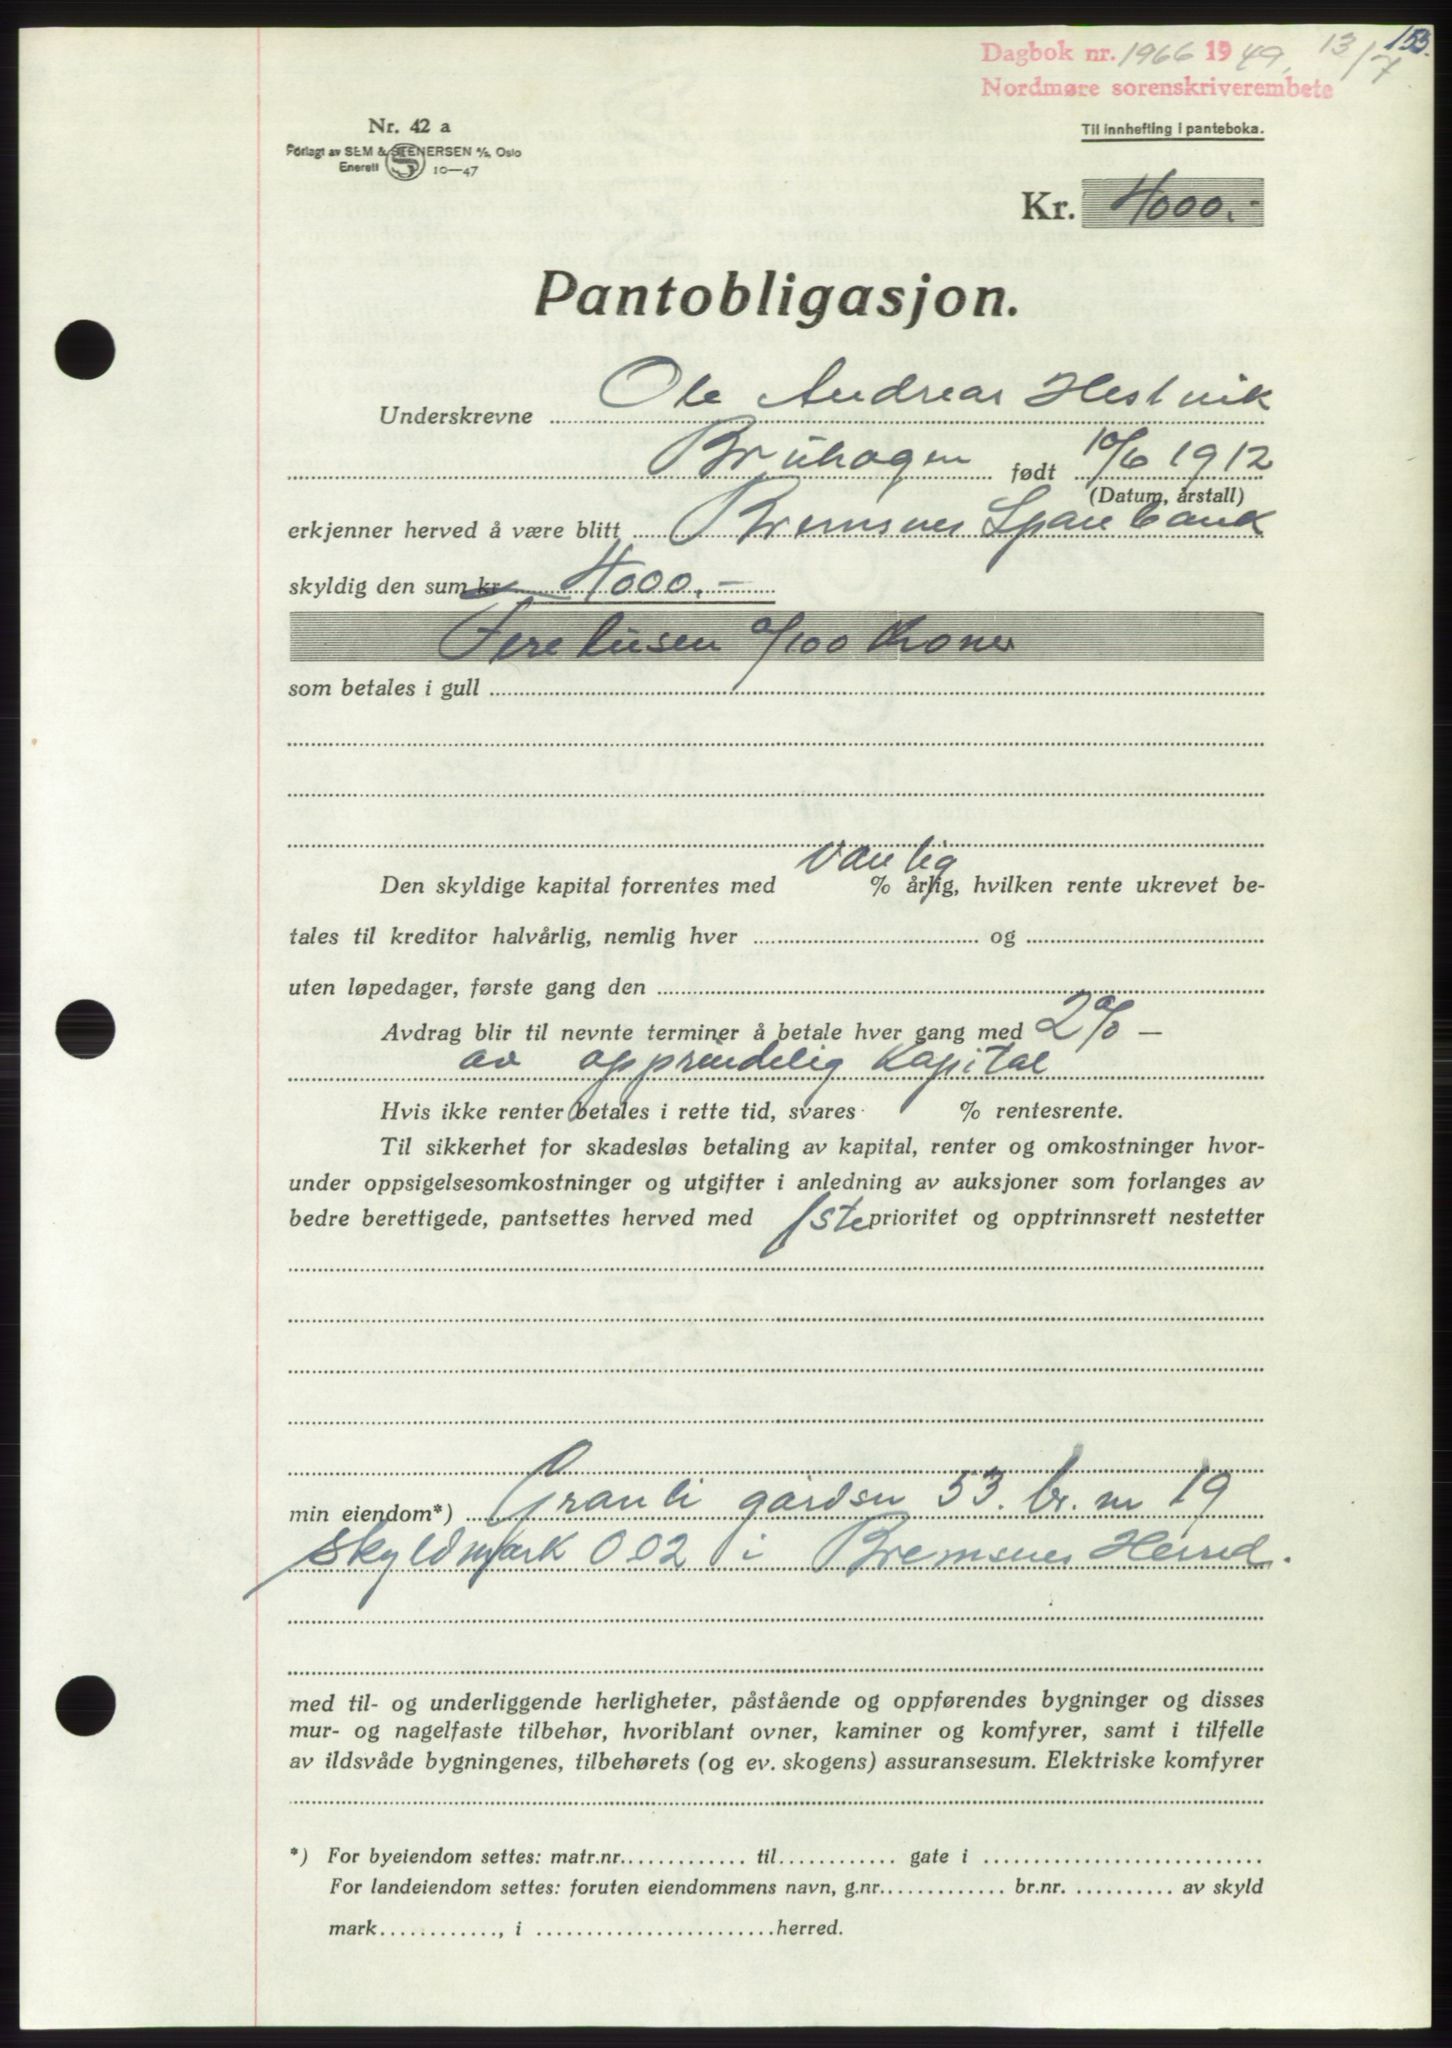 153.
Dagbok nr. 1966 1949. 13/7
Nordmøre sorenskriverembete
Nr. 42 a
Forlagt av SEM & STENERSEN A/S, Oslo
Enerett 10—47
Til innhefting i panteboka.
Kr. 4000.-
Pantobligasjon.
Underskrevne Ole Andreas Hestvik
Bruhagen født 10/6 1912
(Datum, årstall)
erkjenner herved å være blitt Bremsnes Sparebank
skyldig den sum kr 4000.-
Fire tusen 0/100 Kroner
som betales i gull
Den skyldige kapital forrentes med vanlig % årlig, hvilken rente ukrevet be-
tales til kreditor halvårlig, nemlig hver og
uten løpedager, første gang den
Avdrag blir til nevnte terminer å betale hver gang med 2% —
av opprindelig Kapital
Hvis ikke renter betales i rette tid, svares % rentesrente.
Til sikkerhet for skadesløs betaling av kapital, renter og omkostninger hvor-
under oppsigelsesomkostninger og utgifter i anledning av auksjoner som forlanges av
bedre berettigede, pantsettes herved med 1ste prioritet og opptrinnsrett nestetter
min eiendom*) Granli gårdsn 53. br. nr 19
skyldmark 002 i Bremsnes Herred.
med til- og underliggende herligheter, påstående og oppførendes bygninger og disses
mur- og nagelfaste tilbehør, hvoriblant ovner, kaminer og komfyrer, samt i tilfelle
av ildsvåde bygningenes, tilbehørets (og ev. skogens) assuransesum. Elektriske komfyrer
*) For byeiendom settes: matr.nr. til gate i
For landeiendom settes: foruten eiendommens navn, g.nr. br.nr. av skyld
mark, i herred.